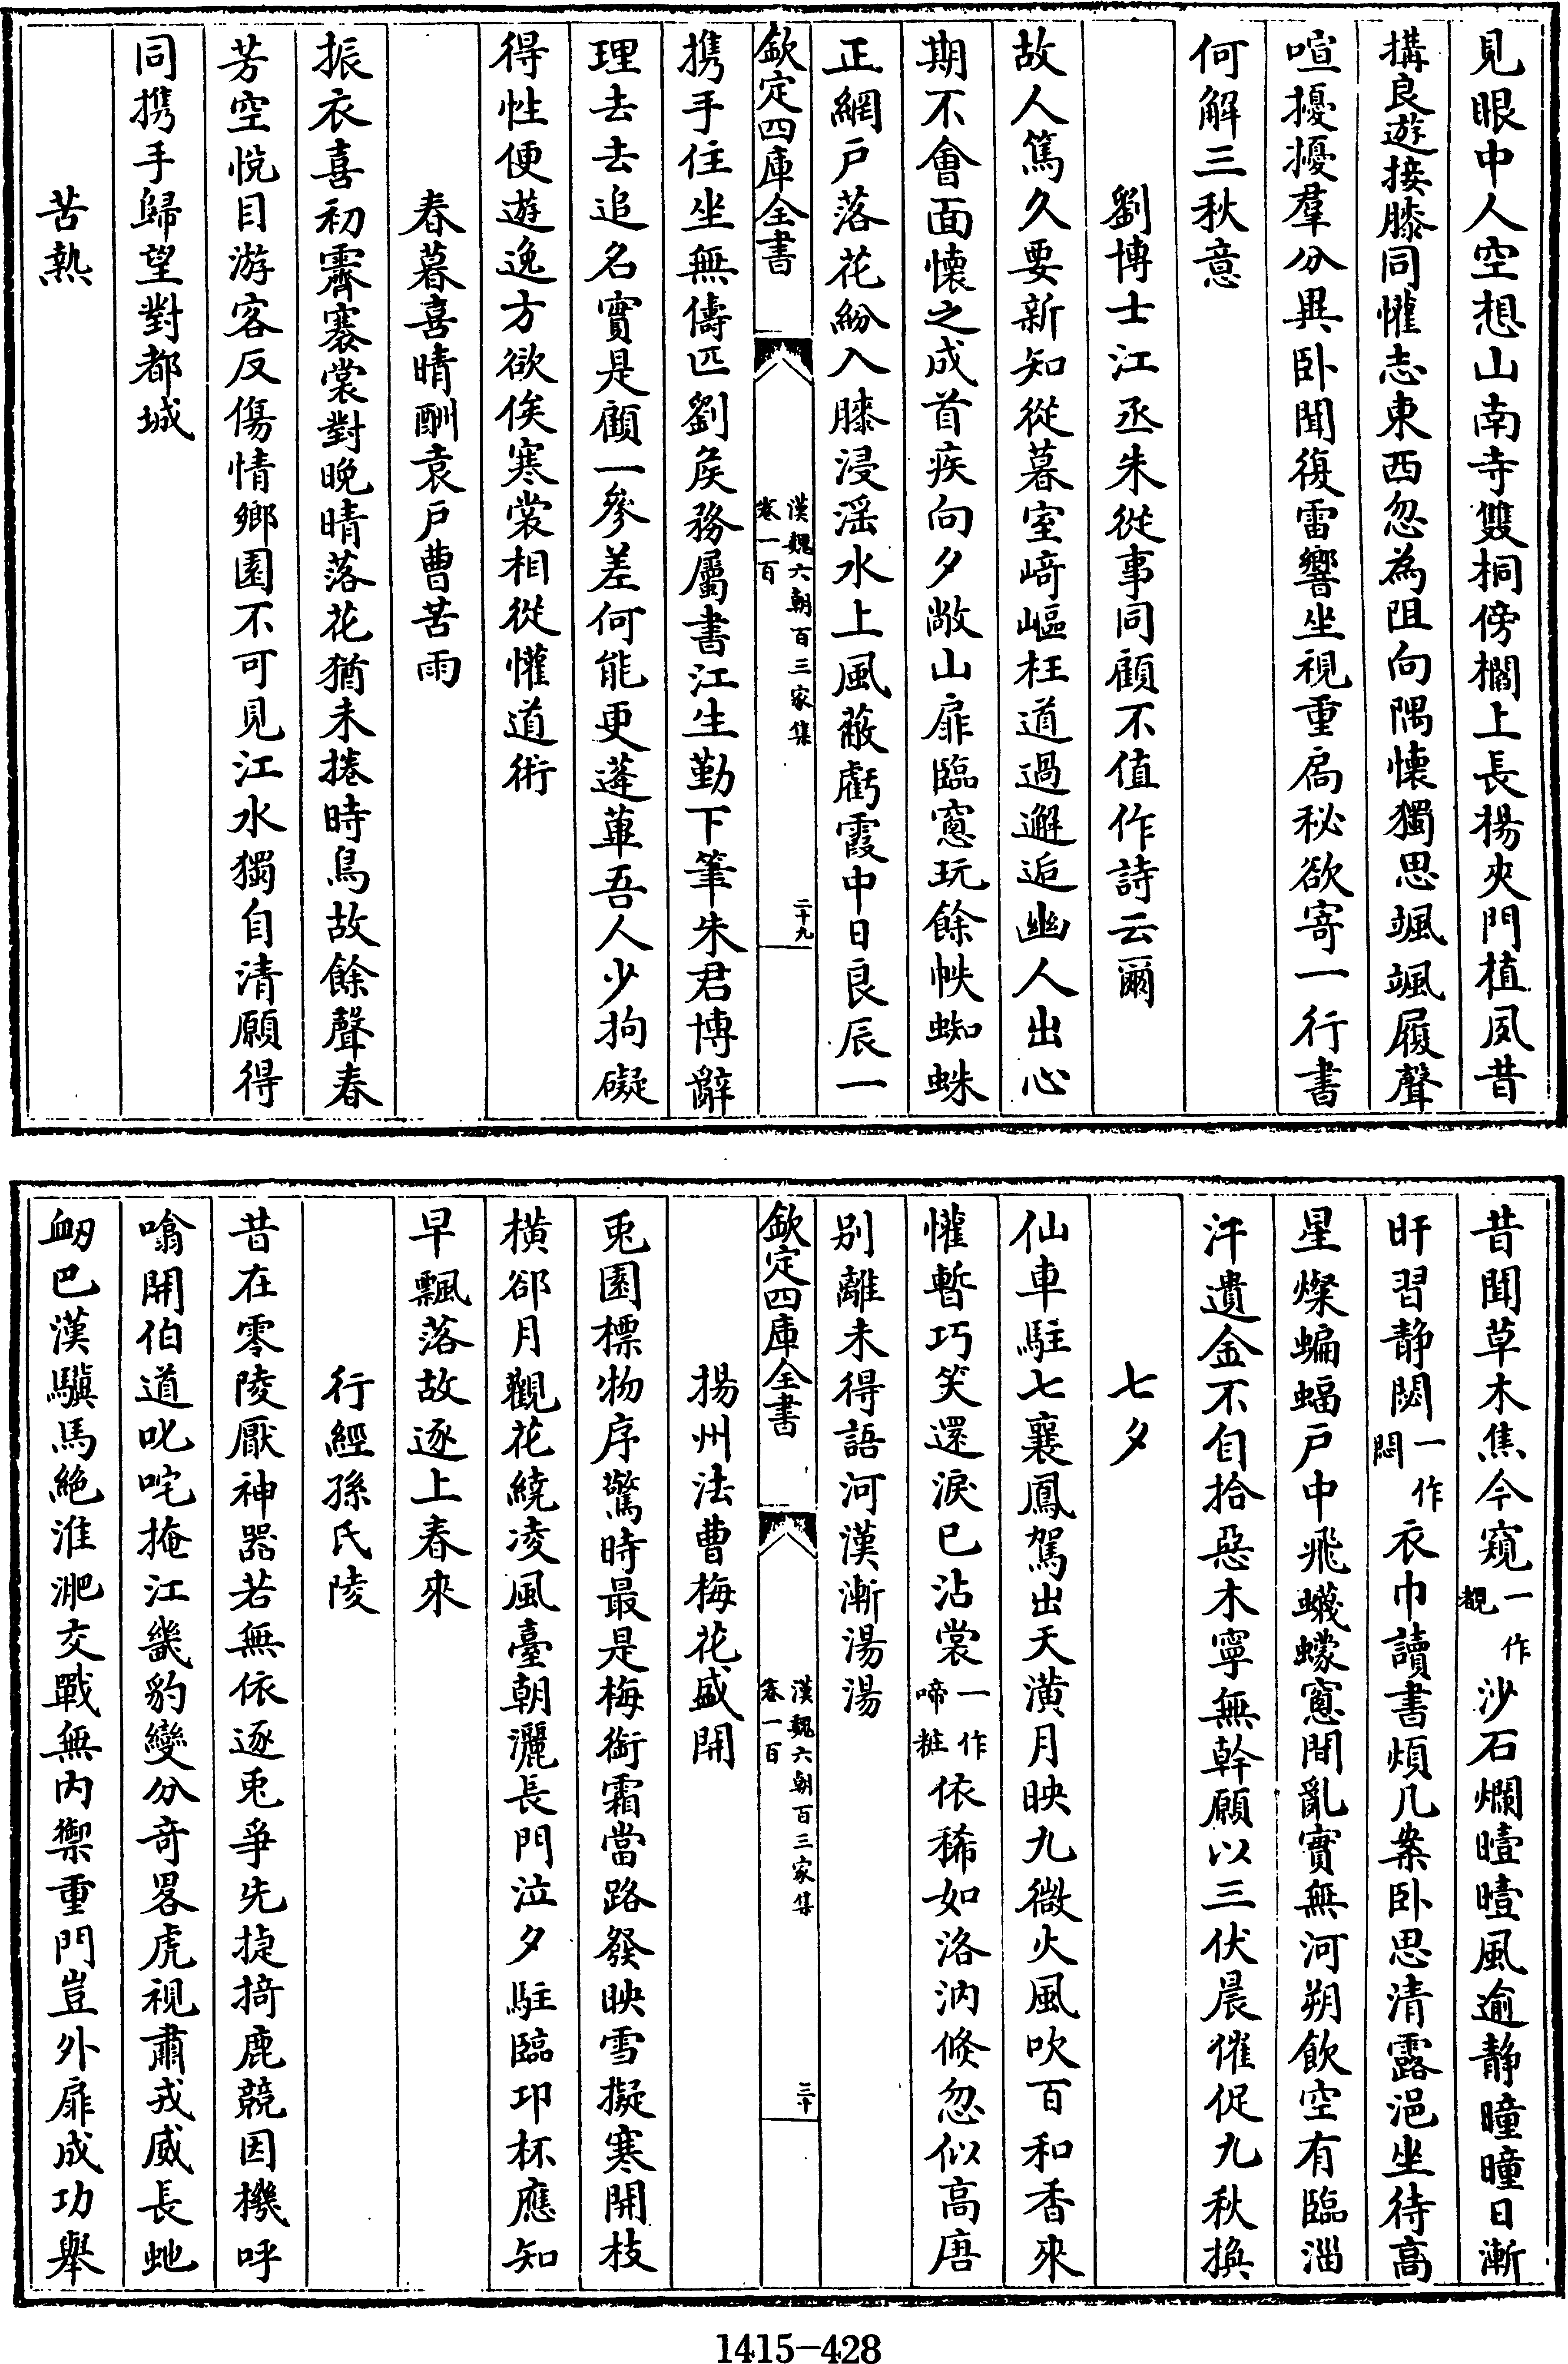 見眼中人空想山南寺雙桐傍櫩上長楊夾門植夙昔
搆良遊接膝同懽志東西忽為阻向隅懷獨思颯颯履聲
喧擾擾羣分異卧聞復雷響坐視重扃秘欲寄一行書
何解三秋意
劉博士江丞朱從事同顧不值作詩云爾
故人篤久要新知從暮室﨑嶇枉道過邂逅幽人出心
期不會面懷之成首疾向夕敞山扉臨窻玩餘帙蜘蛛
正網戸落花紛入膝浸滛水上風蔽虧霞中日良辰一
欽定四庫全書
漢魏六朝百三家集
卷一百
二十九
携手住坐無儔匹劉矦務屬書江生勤下筆朱君博辭
理去去追名實是顧一參差何能更蓬蓽吾人少拘礙
得性便遊逸方欲俟寒裳相從懽道術
春暮喜晴酬袁戸曹苦雨
振衣喜初霽褰裳對晚晴落花猶未捲時鳥故餘聲春
芳空悅目游客反傷情鄉園不可見江水獨自清願得
同携手歸望對都城
苦熱
昔聞草木焦今窺
一作
覩
沙石爛曀曀風逾静曈曈日漸
旰習静閟
一作
悶
衣巾讀書煩几案卧思清露浥坐待高
星燦蝙蝠戸中飛蠛蠓窻間亂實無河朔飲空有臨淄
汗遺金不自拾惡木寧無幹願以三伏晨催促九秋換
七夕
仙車駐七襄鳳駕出天潢月映九微火風吹百和香來
懽暫巧笑還淚已沾裳
一作
啼粧
依稀如洛汭倐忽似高唐
别離未得語河漢漸湯湯
欽定四庫全書
漢魏六朝百三家集
卷一百
三十
揚州法曹梅花盛開
兎園標物序驚時最是梅銜霜當路發映雪擬寒開枝
横郤月觀花繞凌風臺朝灑長門泣夕駐臨卭杯應知
早飄落故逐上春來
行經孫氏陵
昔在零陵厭神器若無依逐兎爭先捷掎鹿競因機呼
噏開伯道叱咤掩江畿豹變分奇畧虎視肅戎威長虵
衂巴漢驥馬絶淮淝交戰無内禦重門豈外扉成功舉
1415-428